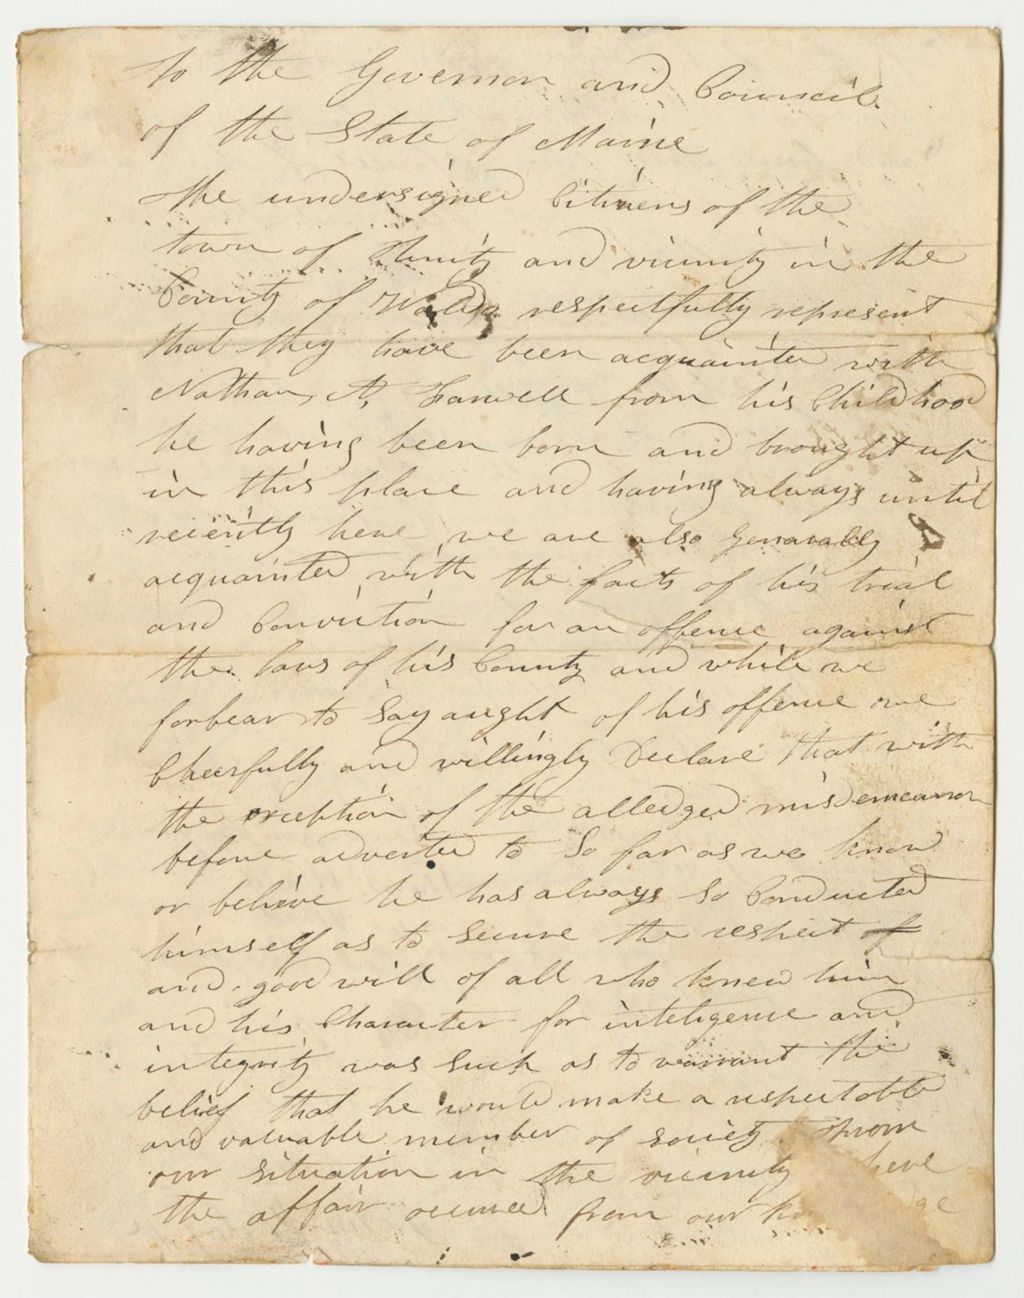 To the Governor and Council
of the State of Maine
The undersigned Citizens of the
town of Unity and vicinity in the
County of Waldo respectfully represent
that they have been acquainted with
Nathan A. Farwell from his Childhood
he having been born and brought up
in this place and having always until
recently here we are also Generally
acquainted with the facts of his trial
and Conviction for an offence against
the laws of his County and while we
forbear to Say aught of his offence we
Cheerfully and willingly Declare that with
the exception of the alledged misdemeanor
before adverted to So far as we know
or believe he has always So Conducted
himself as to Secure the respect of
and good will of all who knew him
and his Character for inteligence and
integrity was Such as to warrant the
belief that he would make a respectable
and valuable member of Society From
our Situation in the vicinity where
the affair occured from our